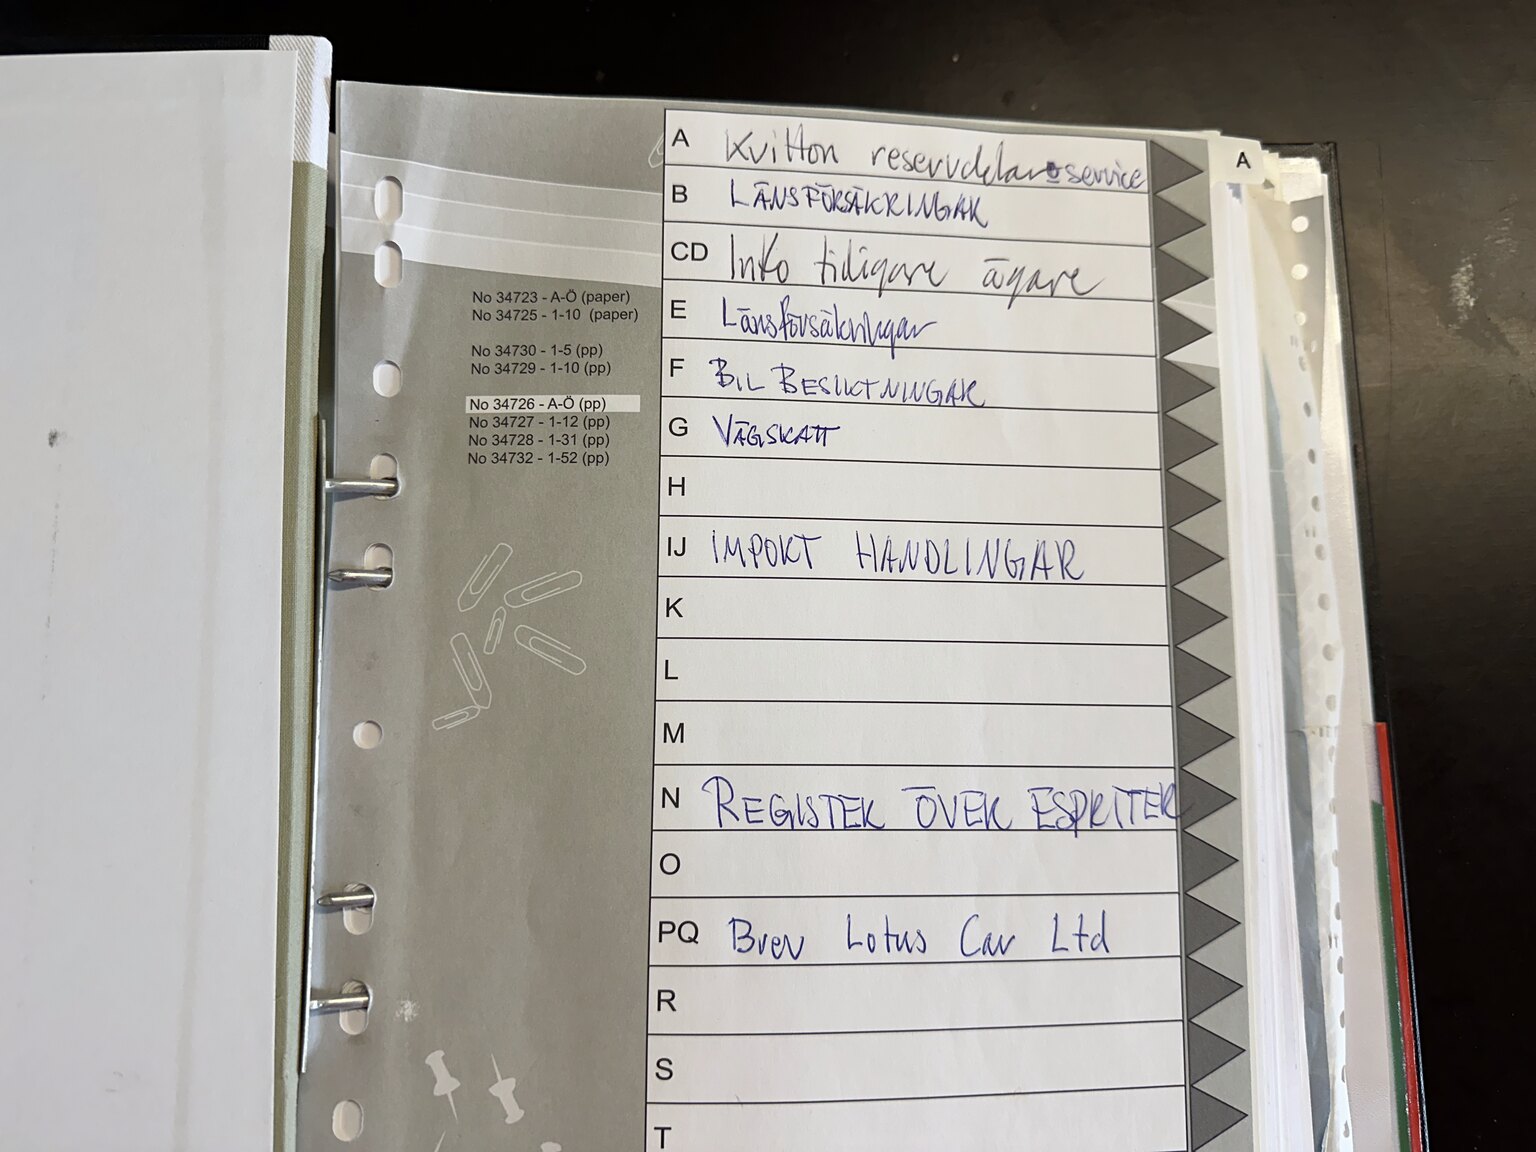 A Kvitton reservdelar o service
A
B LÄNSFÖRSÄKRINGAR
CD Info tidigare ägare
No 34723 - A-Ö (paper)
No 34725 - 1-10 (paper)
E Länsförsäkringar
No 34730 - 1-5 (pp)
No 34729 - 1-10 (pp)
F BIL BESIKTNINGAR
No 34726 - A-Ö (pp)
No 34727 - 1-12 (pp)
No 34728 - 1-31 (pp)
No 34732 - 1-52 (pp)
G VÄGSKATT
H
IJ IMPORT HANDLINGAR
K
L
M
N REGISTER ÖVER ESPRITER
O
PQ Brev Lotus Car Ltd
R
S
T